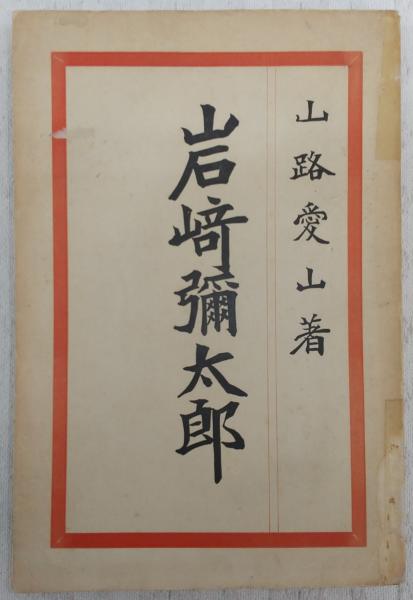 山路愛山著
岩﨑彌太郎